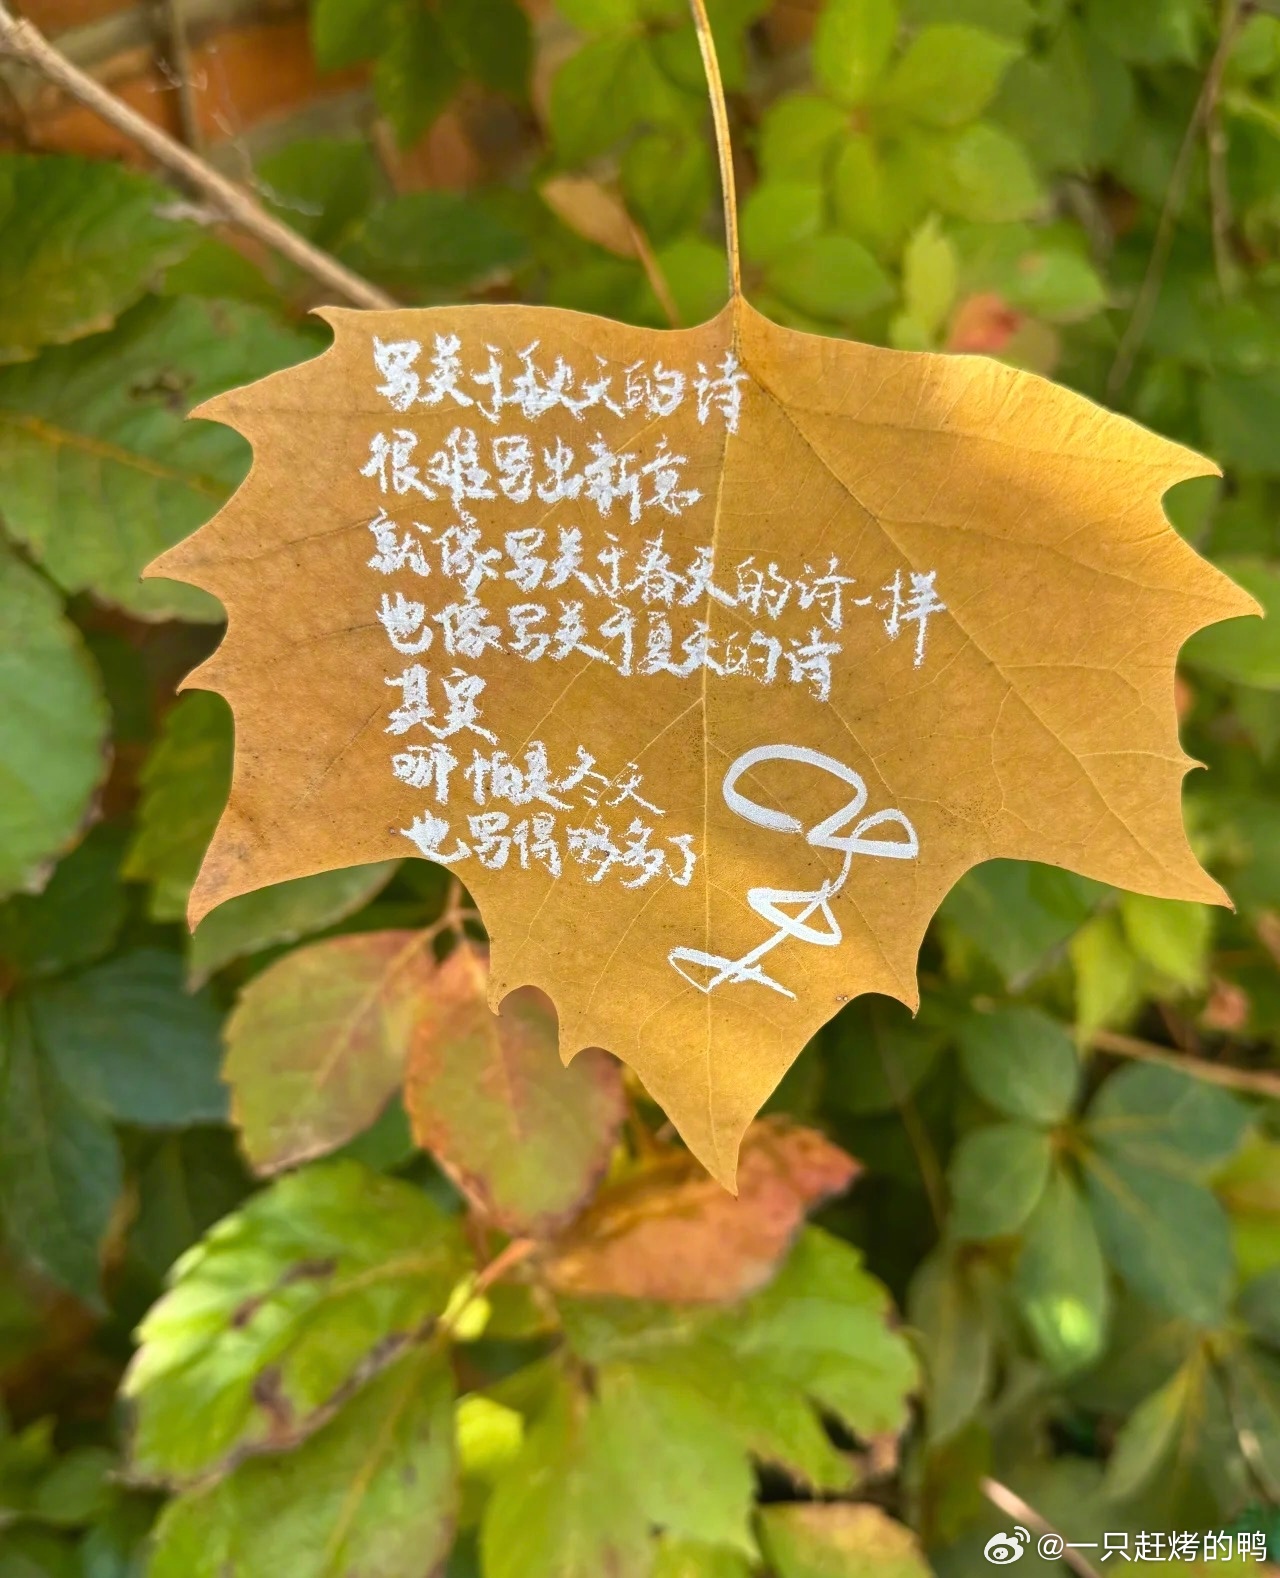 写关于秋天的诗
很难写出新意
就像写关于春天的诗一样
也像写关于夏天的诗
其实
哪怕是冬天
也写得够多了
@一只赶烤的鸭